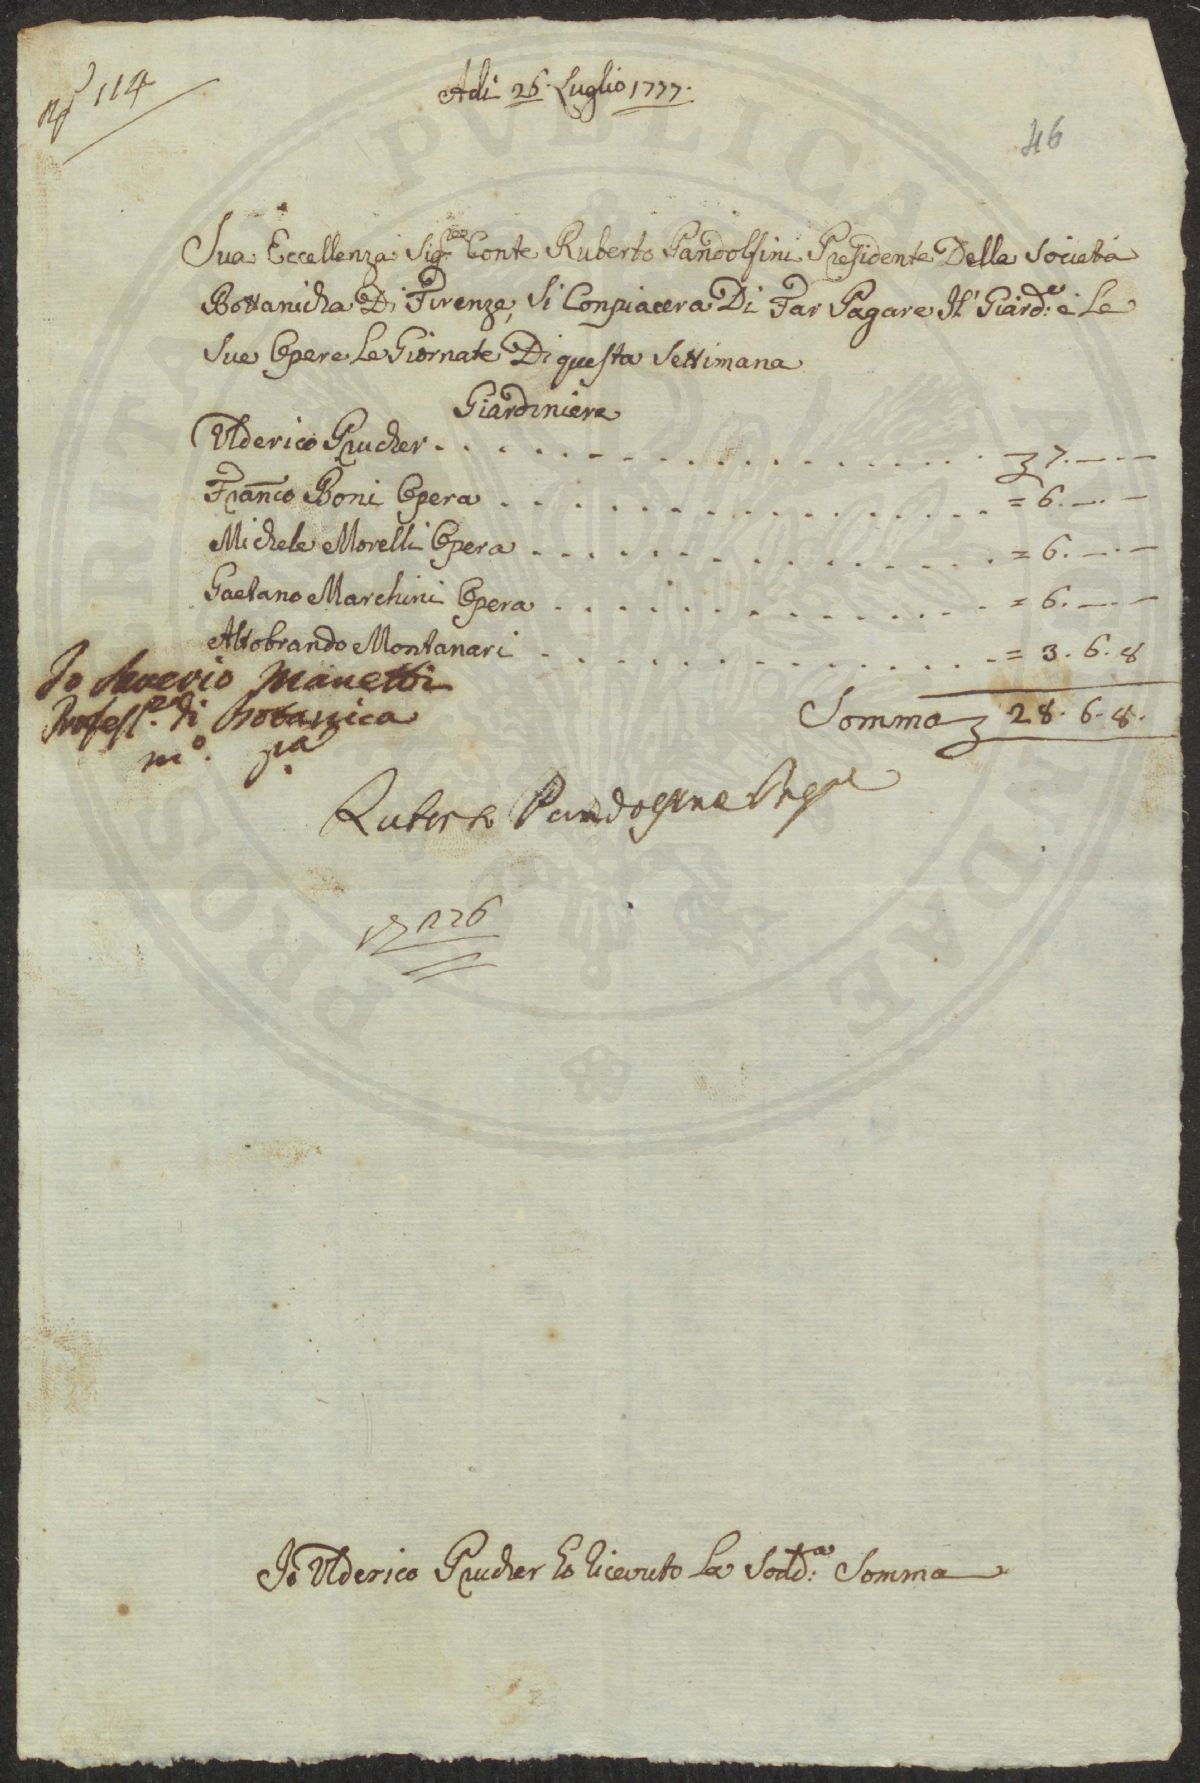 N.º 114
Adi 26. Luglio 1777.
46
Sua Eccellenza Sig.re Conte Ruberto Pandolfini Presidente Della Società
Bottanicha Di Firenze, Si Conpiacera Di Far Pagare Il Giard.e e Le
Sue Opere Le Giornate Di questa Settimana
Giardiniere
Ulderico Prucher . . . . . . . . . . . . . . . . 7. — . —
Franco Boni Opera . . . . . . . . . . . . . . . = 6. — . —
Michele Morelli Opera . . . . . . . . . . . . . = 6. — . —
Gaetano Marchini Opera . . . . . . . . . . . . = 6. — . —
Altobrando Montanari . . . . . . . . . . . . . = 3. 6. 8
Io Saverio Manetti
Profess.re di Botanica
m.o p.a
Somma 28. 6. 8.
Ruberto Pandolfini
226
Io Ulderico Prucher ho ricevuto La Sodd.a Somma
PVBLICAE
PROSPERITATI